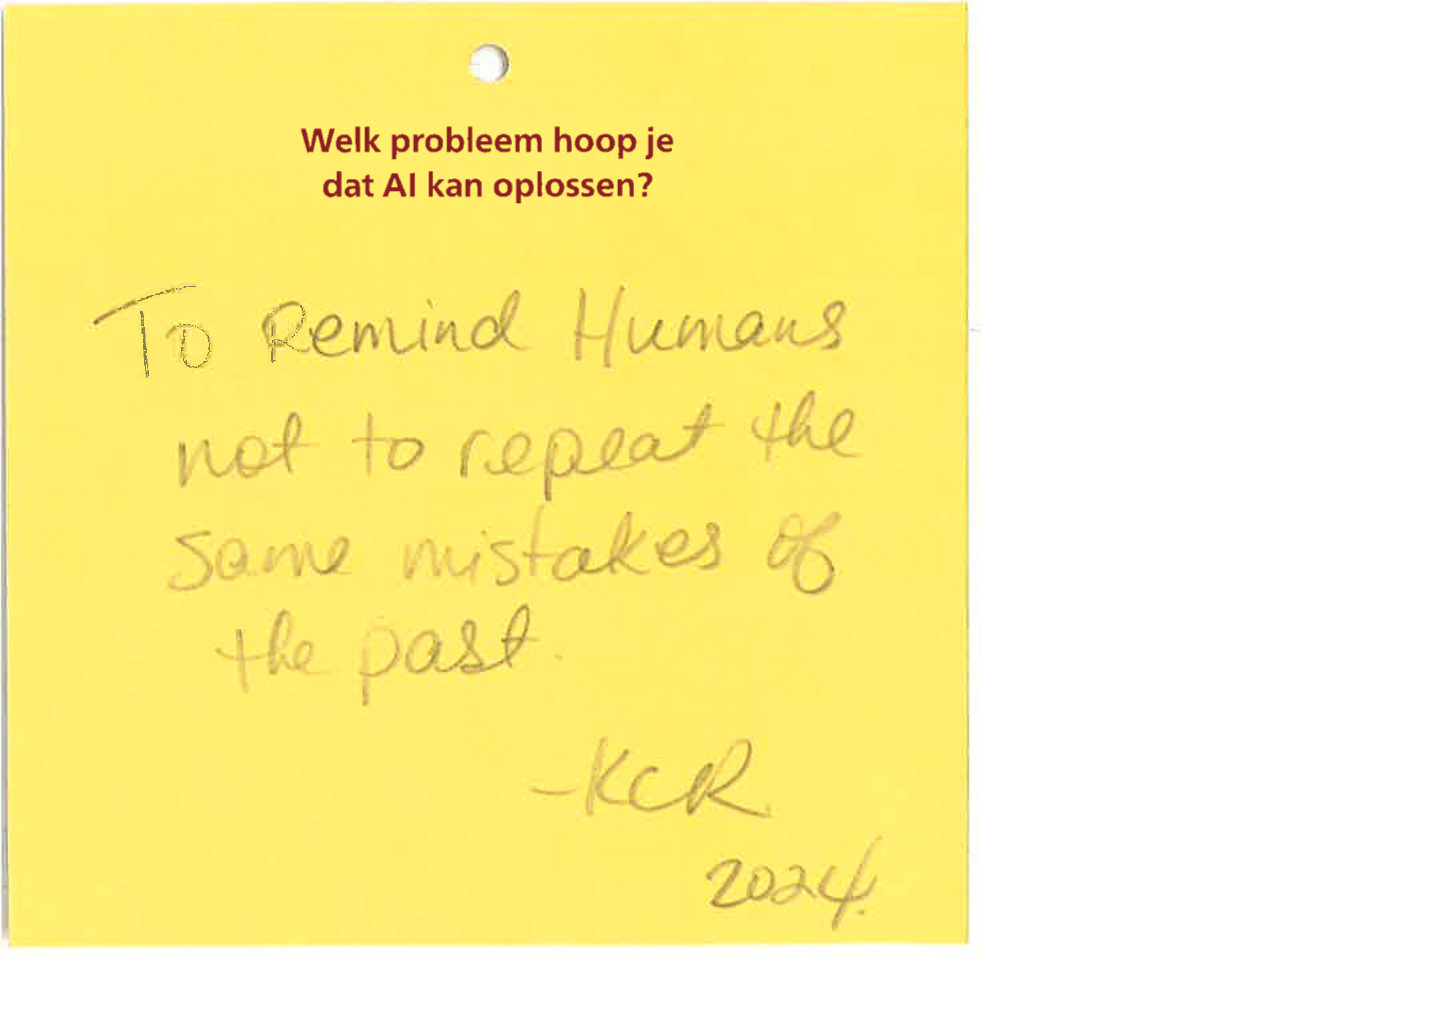 Welk probleem hoop je
dat AI kan oplossen?
To Remind Humans
not to repeat the
same mistakes of
the past.
-KCR.
2024.